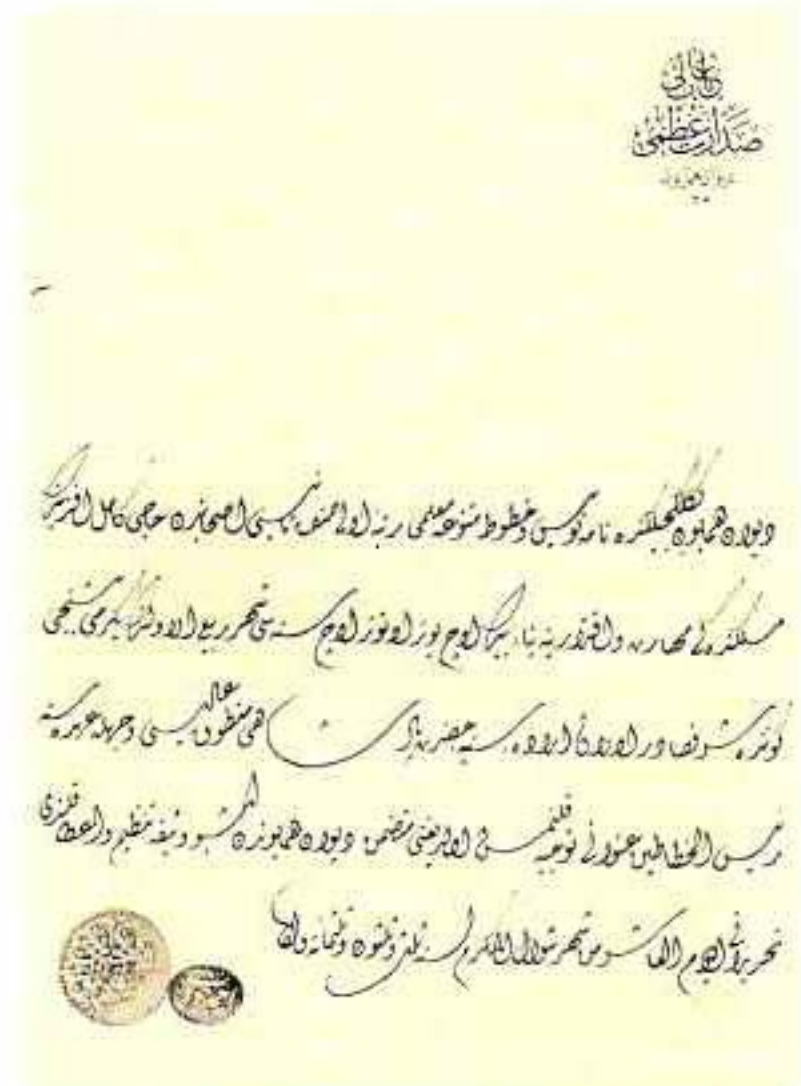 باب عالی
صدارت عظمی
دیوان همایون
دیوان همایون مکلجیلکنده نامه نویس و خطوط متنوعه معلمی رتبه اولی صنف ثانیسی اصحابندن حاجی کامل افندینك
مسلکنده کی مهارت و اقتدارینه بناء بیك اوچ یوز اوتوز اوچ سنه سی شهر ربیع الاولنك یکرمی بشنجی
کوننده شرفصادر اولان اراده سنیه حضرت پادشاهی منطوق عالیسی وجهله عهده سنه
رئیس الخطاطین عنوانی توجیه قلنمش اولدیغنی متضمن دیوان همایوندن اشبو وثیقه تنظیم و اعطا قلندی
تحریرا فی الیوم شهر شوال المکرم لسنه ثلث و ثلثون و ثلثمائه و الف